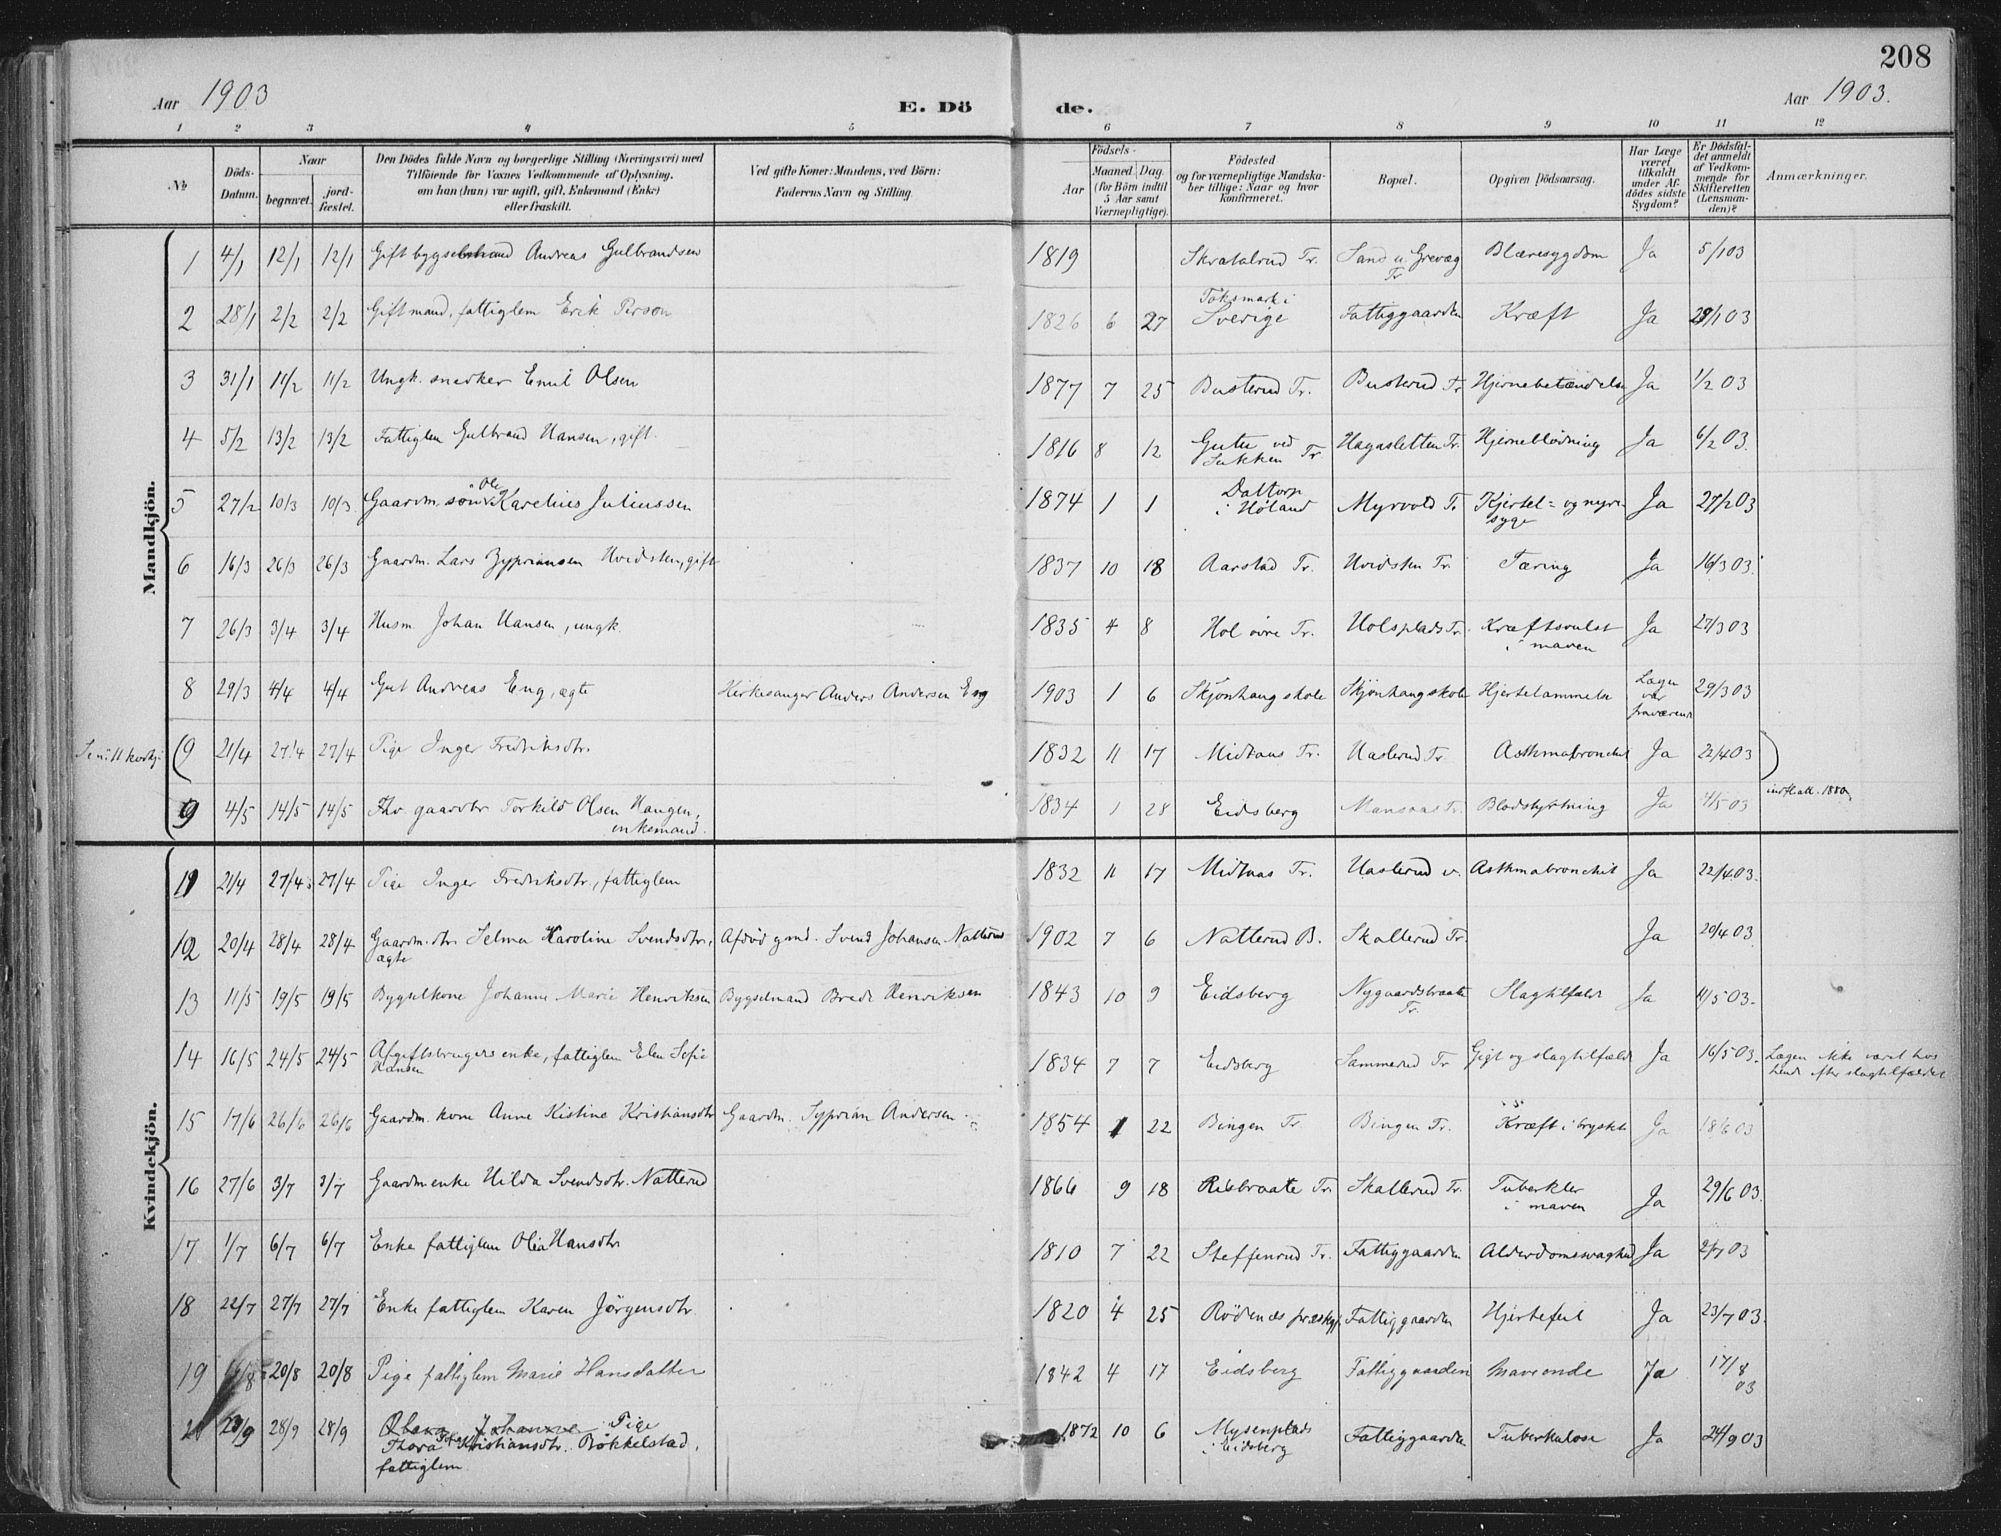 208
Aar 1903
E. Dö
de.
Aar 1903.
1 2 3 4 5 6 7 8 9 10 11 12
No
Döds-Datum.
Naar
begravet.
jordfæstet.
Den Dödes fulde Navn og borgerlige Stilling (Næringsvei) med
Tilföiende for Voxnes Vedkommende af Oplysning,
om han (hun) var ugift, gift, Enkemand (Enke)
eller fraskilt.
Ved gifte Koner: Mandens, ved Börn:
Faderens Navn og Stilling.
Födsels-
Aar
Maaned. Dag.
(for Börn indtil
5 Aar samt
Værnepligtige).
Födested
og for værnepligtige Mandska-
ber tillige: Naar og hvor
konfirmeret.
Bopæl.
Opgiven Dödsaarsag.
Har Læge
været
tilkaldt
under Af-
dödes sidste
Sygdom?
Er Dödsfal-
det anmeldt
af Vedkom-
mende for
Skifteretten
(Lensman-
den)?
Anmærkninger.
Mandkjön.
1 4/1 12/1 12/1 Gift bygselmand Andreas Gulbrandsen 1819 Skratalrud Tr. Sand u. Grevæg Tr Blæresygdom Ja 5/1 03
2 28/1 2/2 2/2 Gift mand, fattiglem Erik Person 1826 6 27 Toksmark i Sverige Fattiggaarden Kræft Ja 29/1 03
3 31/1 11/2 11/2 Ungk. snedker Emil Olsen 1877 7 25 Busterud Tr. Busterud Tr Hjernebetændelse Ja 1/2 03
4 5/2 13/2 13/2 Fattiglem Gulbrand Hansen, gift. 1816 8 12 ved Tr Hagasletten Tr. Hjerneblødning Ja 6/2 03.
5 27/2 10/3 10/3 Gaardm. søn Ole Karelius Juliussen 1874 1 1 Daltorp i Høland Myrvold Tr. Kjertel- og nyresyge Ja 27/2 03
6 16/3 26/3 26/3 Gaardm. Lars Zypriansen Hvidsten, gift 1837 10 18 Aarstad Tr. Hvidsten Tr. Tæring Ja 16/3 03.
7 26/3 3/4 3/4 Husm. Johan Hansen, ungk. 1835 4 8 Hol øvre Tr. Holsplads Tr. Kræftsvulst i maven Ja 27/3 03
8 29/3 4/4 4/4 Gut Andreas Eng, ægte Kirkesanger Anders Andersen Eng 1903 1 6 Skjønhaug skole Skjønhaug skole Hjertelammelse Lægen var fraværende 29/3 03
9 21/4 27/4 27/4 Pige Inger Fredriksdtr. 1832 11 17 Midtaas Tr. Haslerud Tr. Asthmabronchit Ja 22/4 03
9 4/5 14/5 14/5 Fhv. gaardbr Torkild Olsen Haugen, enkemand. 1834 1 28 Eidsberg Mansaas Tr. Blodstyrtning Ja 4/5 03 indfl. att. 1880.
Kvindekjön.
11 21/4 27/4 27/4 Pige Inger Fredriksdtr., fattiglem 1832 11 17 Midtaas Tr. Haslerud v. Asthmabronchit Ja 22/4 03.
12 20/4 28/4 28/4 Gaardm. dtr. Selma Karoline Svendsdtr., ægte Afdød gmd. Svend Johansen Natterud 1902 7 6 Natterud B. Skallerud Tr. Ja 20/4 03.
13 11/5 19/5 19/5 Bygselkone Johanne Marie Henriksen Bygselmand Brede Henriksen 1843 10 9 Eidsberg Nygaardsbraate Tr. Slagtilfælde Ja 11/5 03.
14 16/5 24/5 24/5 Afgiftsbrugers enke, fattiglem Elen Sofie Hansen 1834 7 7 Eidsberg Sammerud Tr Gigt og slagtilfælde Ja 16/5 03. Lægen ikke været hos hende efter slagtilfældet
15 17/6 26/6 26/6 Gaardm. kone Anne Kistine Kristiansdtr Gaardm. Syprian Andersen 1854 1 22 Bingen Tr. Bingen Tr. Kræft i brystet Ja 18/6 03
16 27/6 3/7 3/7 Gaardmenke Hilda Svendsdtr. Natterud 1866 9 18 Risbraate Tr. Skallerud Tr. Tuberkler i maven Ja 29/6 03.
17 1/7 6/7 6/7 Enke fattiglem Olia Hansdtr 1810 7 22 Steffenrud Tr. Fattiggaarden Alderdomssvaghed Ja 2/7 03
18 22/7 27/7 27/7 Enke fattiglem Karen Jörgensdtr. 1820 4 25 Rødenæs præstgj. Fattiggaarden Hjertefeil Ja 23/7 03.
19 20/8 20/8 Pige fattiglem Marie Hansdatter 1842 4 17 Eidsberg Fattiggaarden Maveonde Ja 17/8 03
28/9 28/9 Pige Thora Kristiansdtr. Bökkelstad, fattiglem 1872 10 6 Mysenplads i Eidsberg Fattiggaarden Tuberkulose Ja 24/9 03